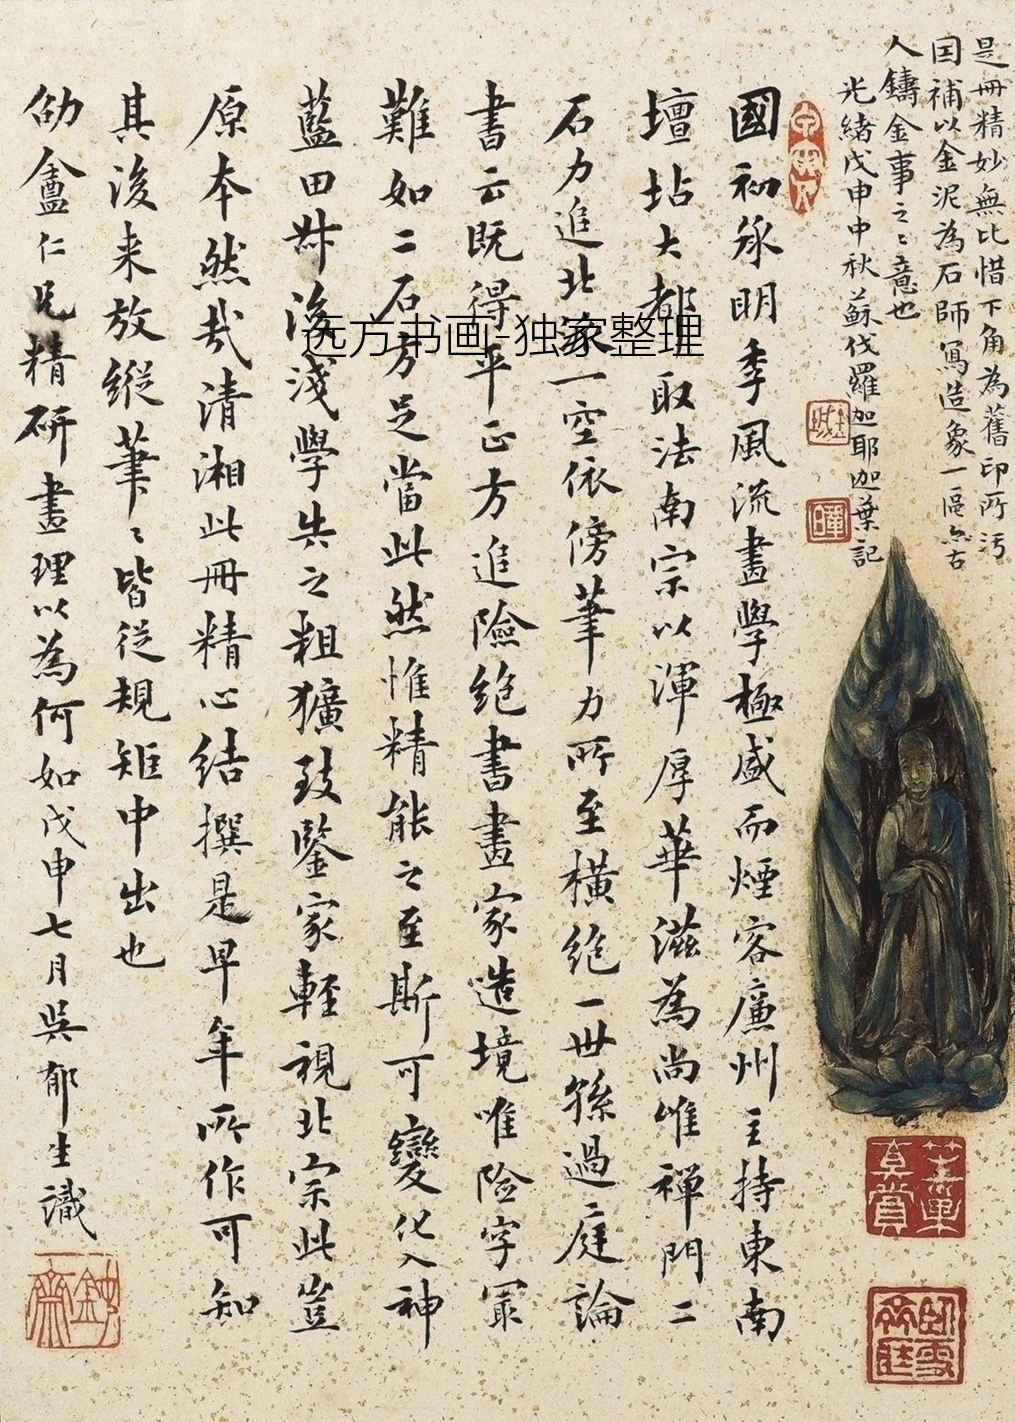 是冊精妙無比惜下角為舊印所污
因補以金泥為石師寫造象一區亦古
人鑄金事之〻意也
光緒戊申中秋蘇伐羅加耶迦葉記
國初承明季風流畫學極盛而煙客廉州主持東南
壇坫大都取法南宗以渾厚華滋為尚唯禪門二
石力追北宗一空依傍筆力所至橫絕一世孫過庭論
書云既得平正方進險絕書畫家造境唯險字冣
難如二石方足當此然惟精能之至斯可變化入神
藍田叔後淺學失之粗獷致鑒家輕視北宗此豈
原本然哉清湘此冊精心結撰是早年所作可知
其後来放縱筆〻皆從規矩中出也
劬盦仁兄精研畫理以為何如戊申七月吳郁生識
远方书画-独家整理
真賞
鈍齋